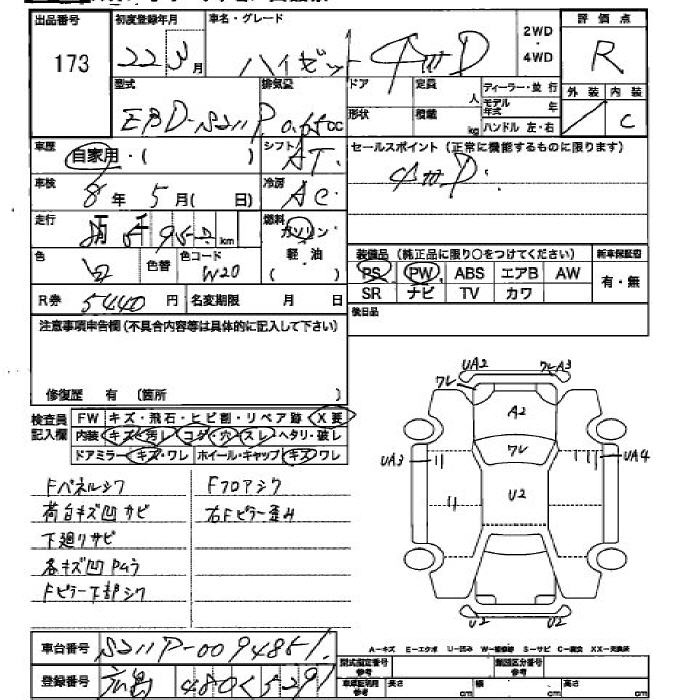 出品番号 初度登録年月 車名・グレード 2WD・4WD 評価点
173 22 3月 ハイゼット 4WD R
型式 排気量 ドア 定員 人 ディーラー・並行 外装 内装
EBD-S211P 0.65cc 形状 積載 kg モデル年式 年 ハンドル 左・右 C
車歴 自家用・( ) シフト AT セールスポイント (正常に機能するものに限ります)
車検 8年 5月( 日) 冷房 AC 4WD
走行 km 燃料 ガソリン 軽油 ( )
色 白 色替 色コード W20
装備品 (純正品に限り○をつけてください) 新車保証書
PS PW ABS エアB AW 有・無
SR ナビ TV カワ
R券 5440円 名変期限 月 日
後日品
注意事項申告欄(不具合内容等は具体的に記入して下さい)
修復歴 有 (箇所 )
検査員記入欄 FW キズ・飛石・ヒビ割・リペア跡・X要
内装 キズ・汚レ・コゲ・穴・スレ・ヘタリ・破レ
ドアミラー・キズ・ワレ ホイール・キャップ・キズ・ワレ
Fパネルシワ Fフロアシワ
荷台キズ凹サビ 右Fピラー歪み
下廻りサビ
各キズ凹Pムラ
Fピラー下部シワ
UA2 ワレA3
ワレ A2
ワレ
UA3 UA4
U2
U2 U2
車台番号 S211P-0094851
A-キズ E-エクボ U-凹み W-補修跡 S-サビ C-腐食 XX-交換済
型式指定番号 参考 類別区分番号 参考
登録番号 480 5291
車庫証明用 参考 長さ cm 幅 cm 高さ cm